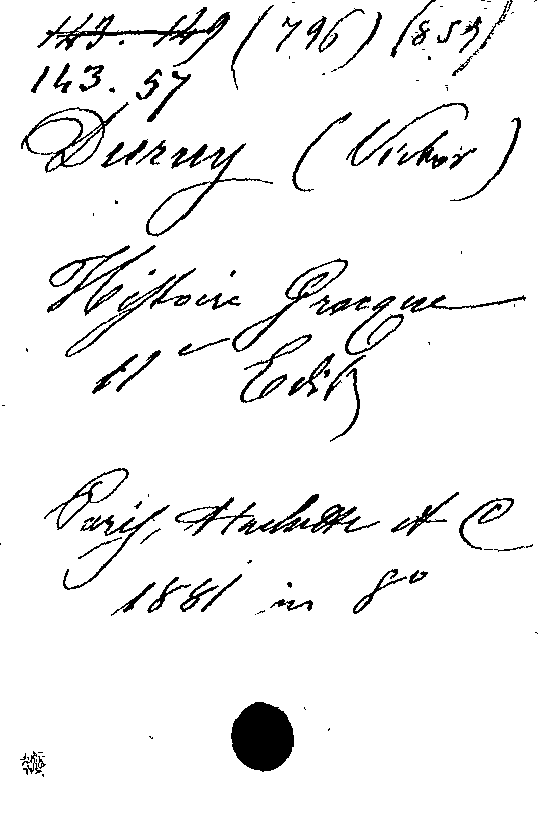 143. 149 (796) (855)
143. 57
Duruy (Victor)
Histoire Grecque
11e Edit
Paris, Hachette et C
1881 in 8°